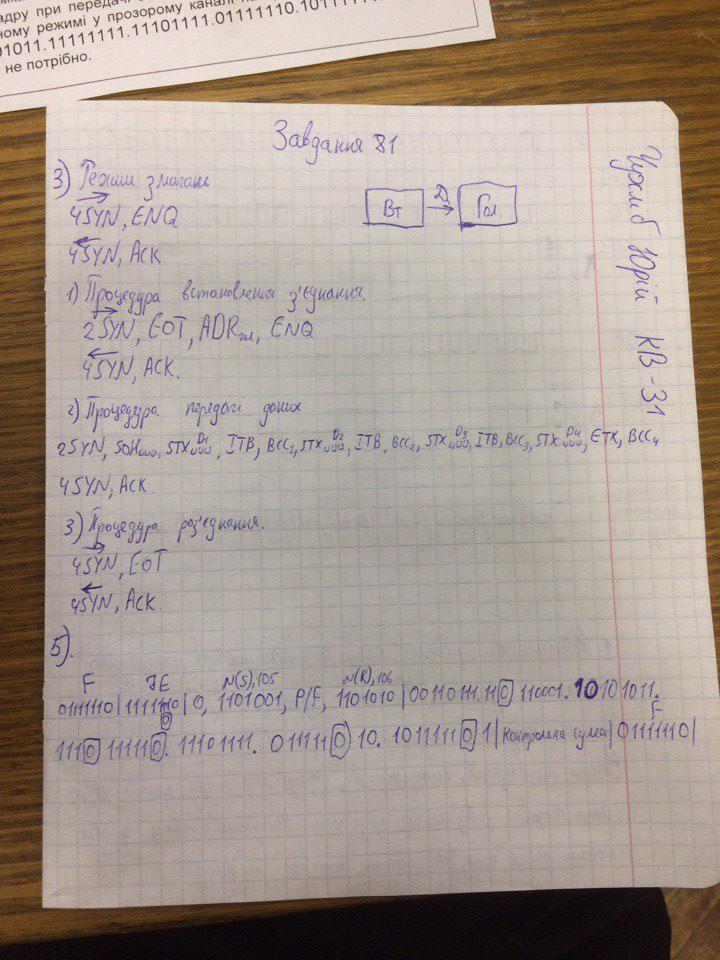 адру при передачі
ному режимі у прозорому каналі
01011.11111111.11101111.01111110.101111
не потрібно.
Завдання 81
3) Режим змагань
4SYN, ENQ
4SYN, ACK
Вт Д Гол.
1) Процедура встановлення з'єднання.
2SYN, EOT, ADRгол, ENQ
4SYN, ACK.
2) Процедура передачі даних
2SYN, SOH, STX D1, ITB, BCC1, STX D2, ITB, BCC2, STX D3, ITB, BCC3, STX D4, ETX, BCC4
4SYN, ACK.
3) Процедура роз'єднання.
4SYN, EOT
4SYN, ACK.
5).
F 7E N(S),105 N(R),106
01111110|1111110|0, 1101001, P/F, 1101010|00110111.110110001.10101011.
0
F
1110111110.11101111.011111010.101111101|контрольна сума|01111110|
Чухліб Юрій КВ-31